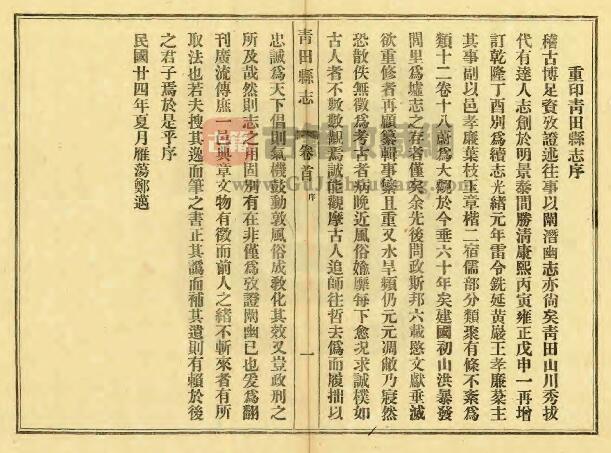 重印青田縣志序
稽古博足資攷證述往事以闡潛幽志亦尙矣靑田山川秀拔
代有達人志創於明景泰間勝淸康熙丙寅雍正戊申一再增
訂乾隆丁酉別爲續志光緒元年雷令銑延黃巖王孝廉棻主
其事副以邑孝廉葉枝玉章楷二宿儒部分類聚有條不紊爲
類十二卷十八蔚爲大觀於今垂六十年矣建國初山洪暴發
閭里爲墟志之存者僅矣余先後問政斯邦六載愍文獻垂滅
欲重修者再顧纂輯事繁且重又水旱頻仍元元凋敝乃寢然
恐散佚無徵爲考古者病晚近風俗媮靡每下愈況求誠樸如
古人者不數數觀焉誠能觀摩古人追師往哲夫僞而履拙以
靑田縣志
卷首
序
一
忠誠爲天下倡則氣機鼓動敦風俗成敎化其效又豈政刑之
所及哉然則志之用固別有在非僅爲攷證闡幽已也爰爲翻
刊廣流傳庶一邑典章文物有徵而前人之緒不斬來者有所
取法也若夫搜其逸而筆之書正其譌而補其遺則有賴於後
之君子焉於是乎序
民國廿四年夏月雁蕩鄭邁